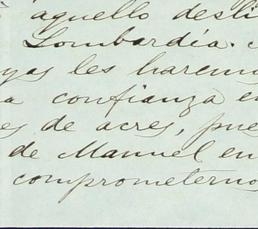 aquello desli
Lombardía.
yas les haremo
a confianza en
es de acres, pue
de Manuel en
comprometerno